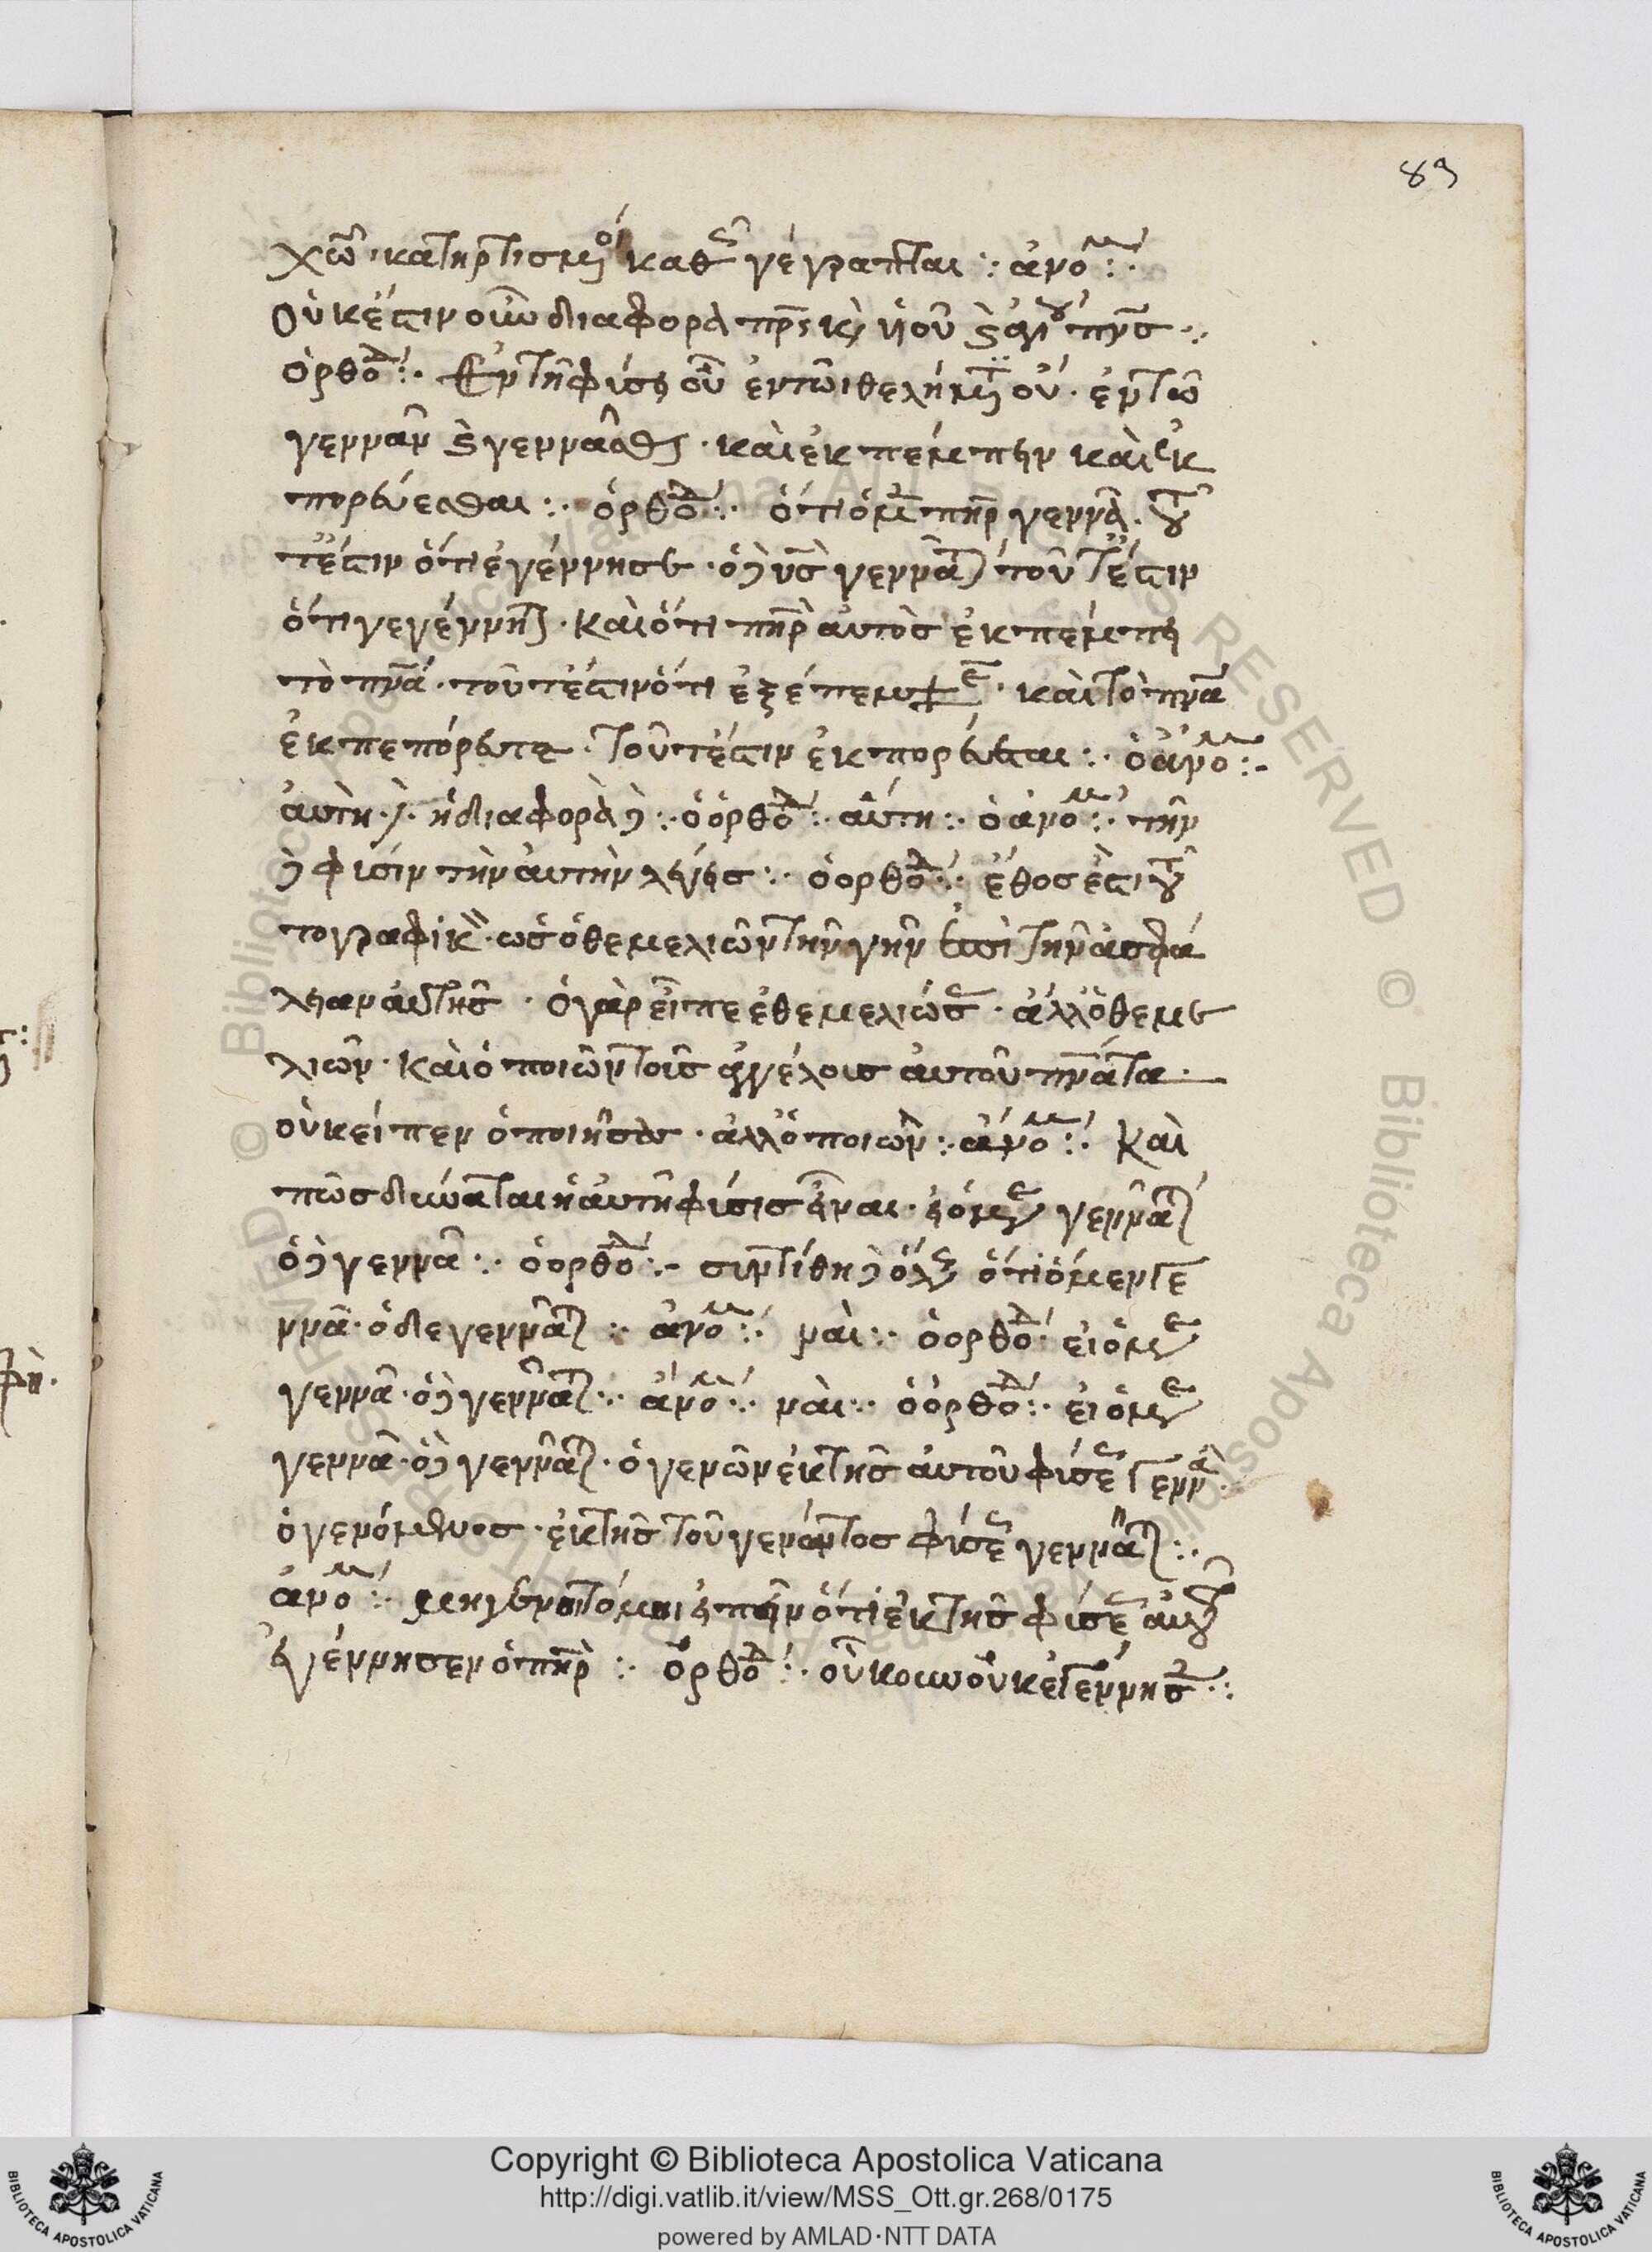 89
χῶ· κατηρτισμοί καθὼς γέγραπται :· ἀνό :·
Οὐκ ἔστιν οὖν διαφορὰ πρς κ(αὶ) υἱοῦ κ(αὶ) ἁγίου πνς :·
ὀρθό :· Ἐν τῆ φύσει οὔ ἐν τῶι θελήματι οὔ· ἐν τῶ
γεννᾶν κ(αὶ) γεννᾶσθαι· καὶ ἐκπέμπειν καὶ ἐκ
πορεύεσθαι :· ὀρθό :· ὅτι ὁ μὲν πηρ γεννᾶ· τοῦ
τἔστιν ὅτι ἐγέννησε· ὁ δὲ υς γεννᾶται τοῦτέστιν
ὅτι γεγέννηται· καὶ ὅτι πηρ αὐτὸσ ἐκπέμπει
τὸ πνα· τοῦτέστιν ὅτι ἐξέπεμψε· καὶ τὸ πνα
ἐκπεπόρευται· τοῦτέστιν ἐκπορεύεται :· ὁ ἀνό :-
αὐτη· ἐστὶν ἡ διαφορὰ δὲ :· ὁ ὀρθό :· αὕτη :· ὁ ἀνό :· τὴν
δὲ φύσιν τὴν αὐτὴν λέγεισ :· ὁ ορθό :· ἔθος ἐστὶ τοῦ
το γραφικὸν· ὡς ὁ θεμελιῶν τὴν γῆν ἐπὶ τὴν ἀσφά
λειαν αὐτῆς · ὁ γὰρ εἶπε ἐθεμελίωσεν · ἀλλ ὁ θεμε
λιῶν· καὶ ὁ ποιῶν τοὺς ἀγγέλους αὐτοῦ πνατα·
οὐκ εἶπεν ὁ ποιῆσας· ἀλλ ὁ ποιῶν :· ἀνό :· καὶ
πῶς δύναται ἡ αὐτὴ φύσις εἶναι· εἰ ὁ μὲν γεννᾶται
ὁ δὲ γεννᾶ :· ὁ ορθό :- συντίθη δὲ ὅλως ὅτι ὁ μεν γε
ννᾶ· ὁ δε γεννᾶται :· ἀνό :· ναὶ :· ὁ ορθό· εἰ ὁ μὲν
γεννᾶ· ὁ δὲ γεννᾶται :· ἀνό :· ναὶ :· ὁ ὀρθό :· εἰ ὁ μὲν
γεννᾶ· ὁ δὲ γεννᾶται· ὁ γενῶν ἐκ τῆς αὐτοῦ φύσεως γεννᾶ·
ὁ γενόμενος· ἐκ τῆς τοῦ γενῶντος φύσεως γεννᾶται :·
ἀνό :· εἰπεῖν ὅτι ἐκ τῆς φύσεως αὐτοῦ
ἐγέννησεν ὁ πηρ :· ὀρθό :· οὐκοῦν οὐκ ἐγέννησεν :·
Copyright © Biblioteca Apostolica Vaticana
http://digi.vatlib.it/view/MSS_Ott.gr.268/0175
powered by AMLAD·NTT DATA